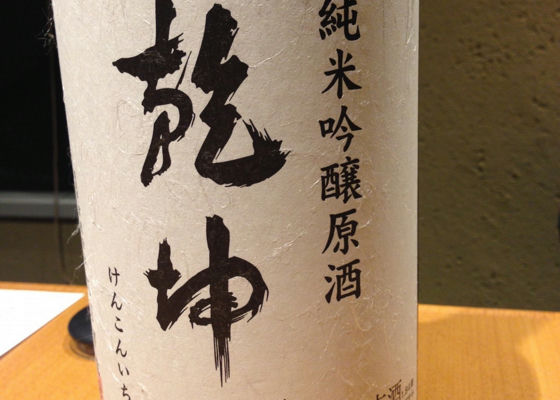 純米吟醸原酒
乾坤
けんこんいち
酒